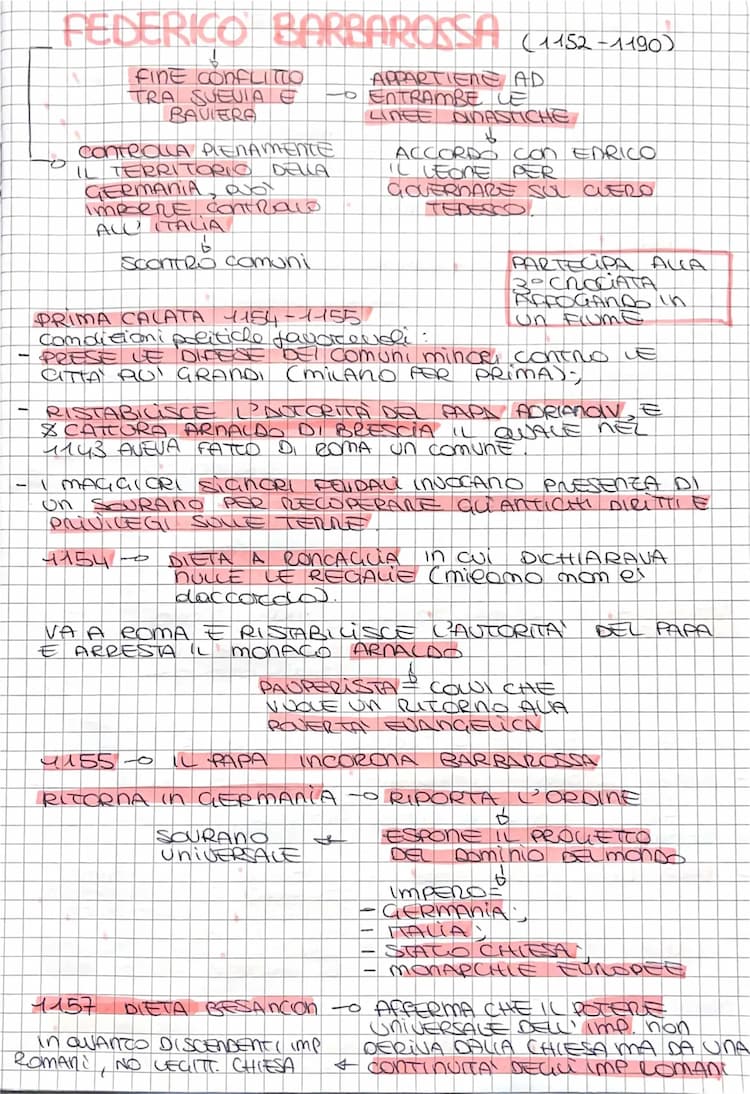 FEDERICO BARBAROSSA (1152-1190)
FINE CONFLITTO
TRA SVEVIA E
BAVIERA
→ APPARTIENE AD
ENTRAMBE LE
LINEE DINASTICHE
CONTROLLA PIENAMENTE
IL TERRITORIO DELLA
GERMANIA, PUÒ
IMPORRE CONTROLLO
ALL'ITALIA
SCONTRO COMUNI
ACCORDO CON ENRICO
IL LEONE PER
GOVERNARE SUL CLERO
TEDESCO.
PARTECIPA ALLA
3° CROCIATA
AFFOGANDO IN
UN FIUME
PRIMA CALATA 1154-1155
Condizioni politiche favorevoli:
- PRESE LE DIFESE DEI COMUNI MINORI CONTRO LE
CITTÀ PIÙ GRANDI (MILANO PER PRIMA);
- RISTABILISCE L'AUTORITÀ DEL PAPA ADRIANO IV, E
CATTURA ARNALDO DI BRESCIA IL QUALE NEL
1143 AVEVA FATTO DI ROMA UN COMUNE.
- I MAGGIORI SIGNORI FEUDALI INVOCANO PRESENZA DI
UN SOVRANO PER RECUPERARE GLI ANTICHI DIRITTI E
PRIVILEGI SULLE TERRE.
1154 → DIETA A RONCAGLIA IN CUI DICHIARAVA
NULLE LE REGALIE (milano non è
daccordo).
VA A ROMA E RISTABILISCE L'AUTORITÀ DEL PAPA
E ARRESTA IL MONACO ARNALDO
PAUPERISTA = COLUI CHE
VUOLE UN RITORNO ALLA
POVERTÀ EVANGELICA
1155 → IL PAPA INCORONA BARBAROSSA
RITORNA IN GERMANIA → RIPORTA L'ORDINE
ESPONE IL PROGETTO
DEL DOMINIO DEL MONDO
SOVRANO
UNIVERSALE
IMPERO =
- GERMANIA;
- ITALIA;
- STATO CHIESA;
- MONARCHIE EUROPEE
1157 DIETA BESANCON → AFFERMA CHE IL POTERE
UNIVERSALE DELL'IMP. NON
DERIVA DALLA CHIESA MA DA UNA
← CONTINUITÀ DEGLI IMP ROMANI
IN QUANTO DISCENDENTI IMP
ROMANI, NO LEGITT. CHIESA